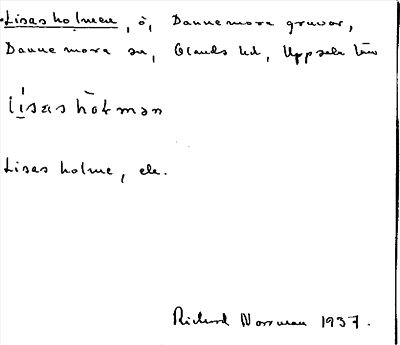 Lisasholmen, ö, Dannemora gruvor,
Dannemora sn, Olands hd, Uppsala län
Lisas holme, ek.
Richard Norrman 1937.